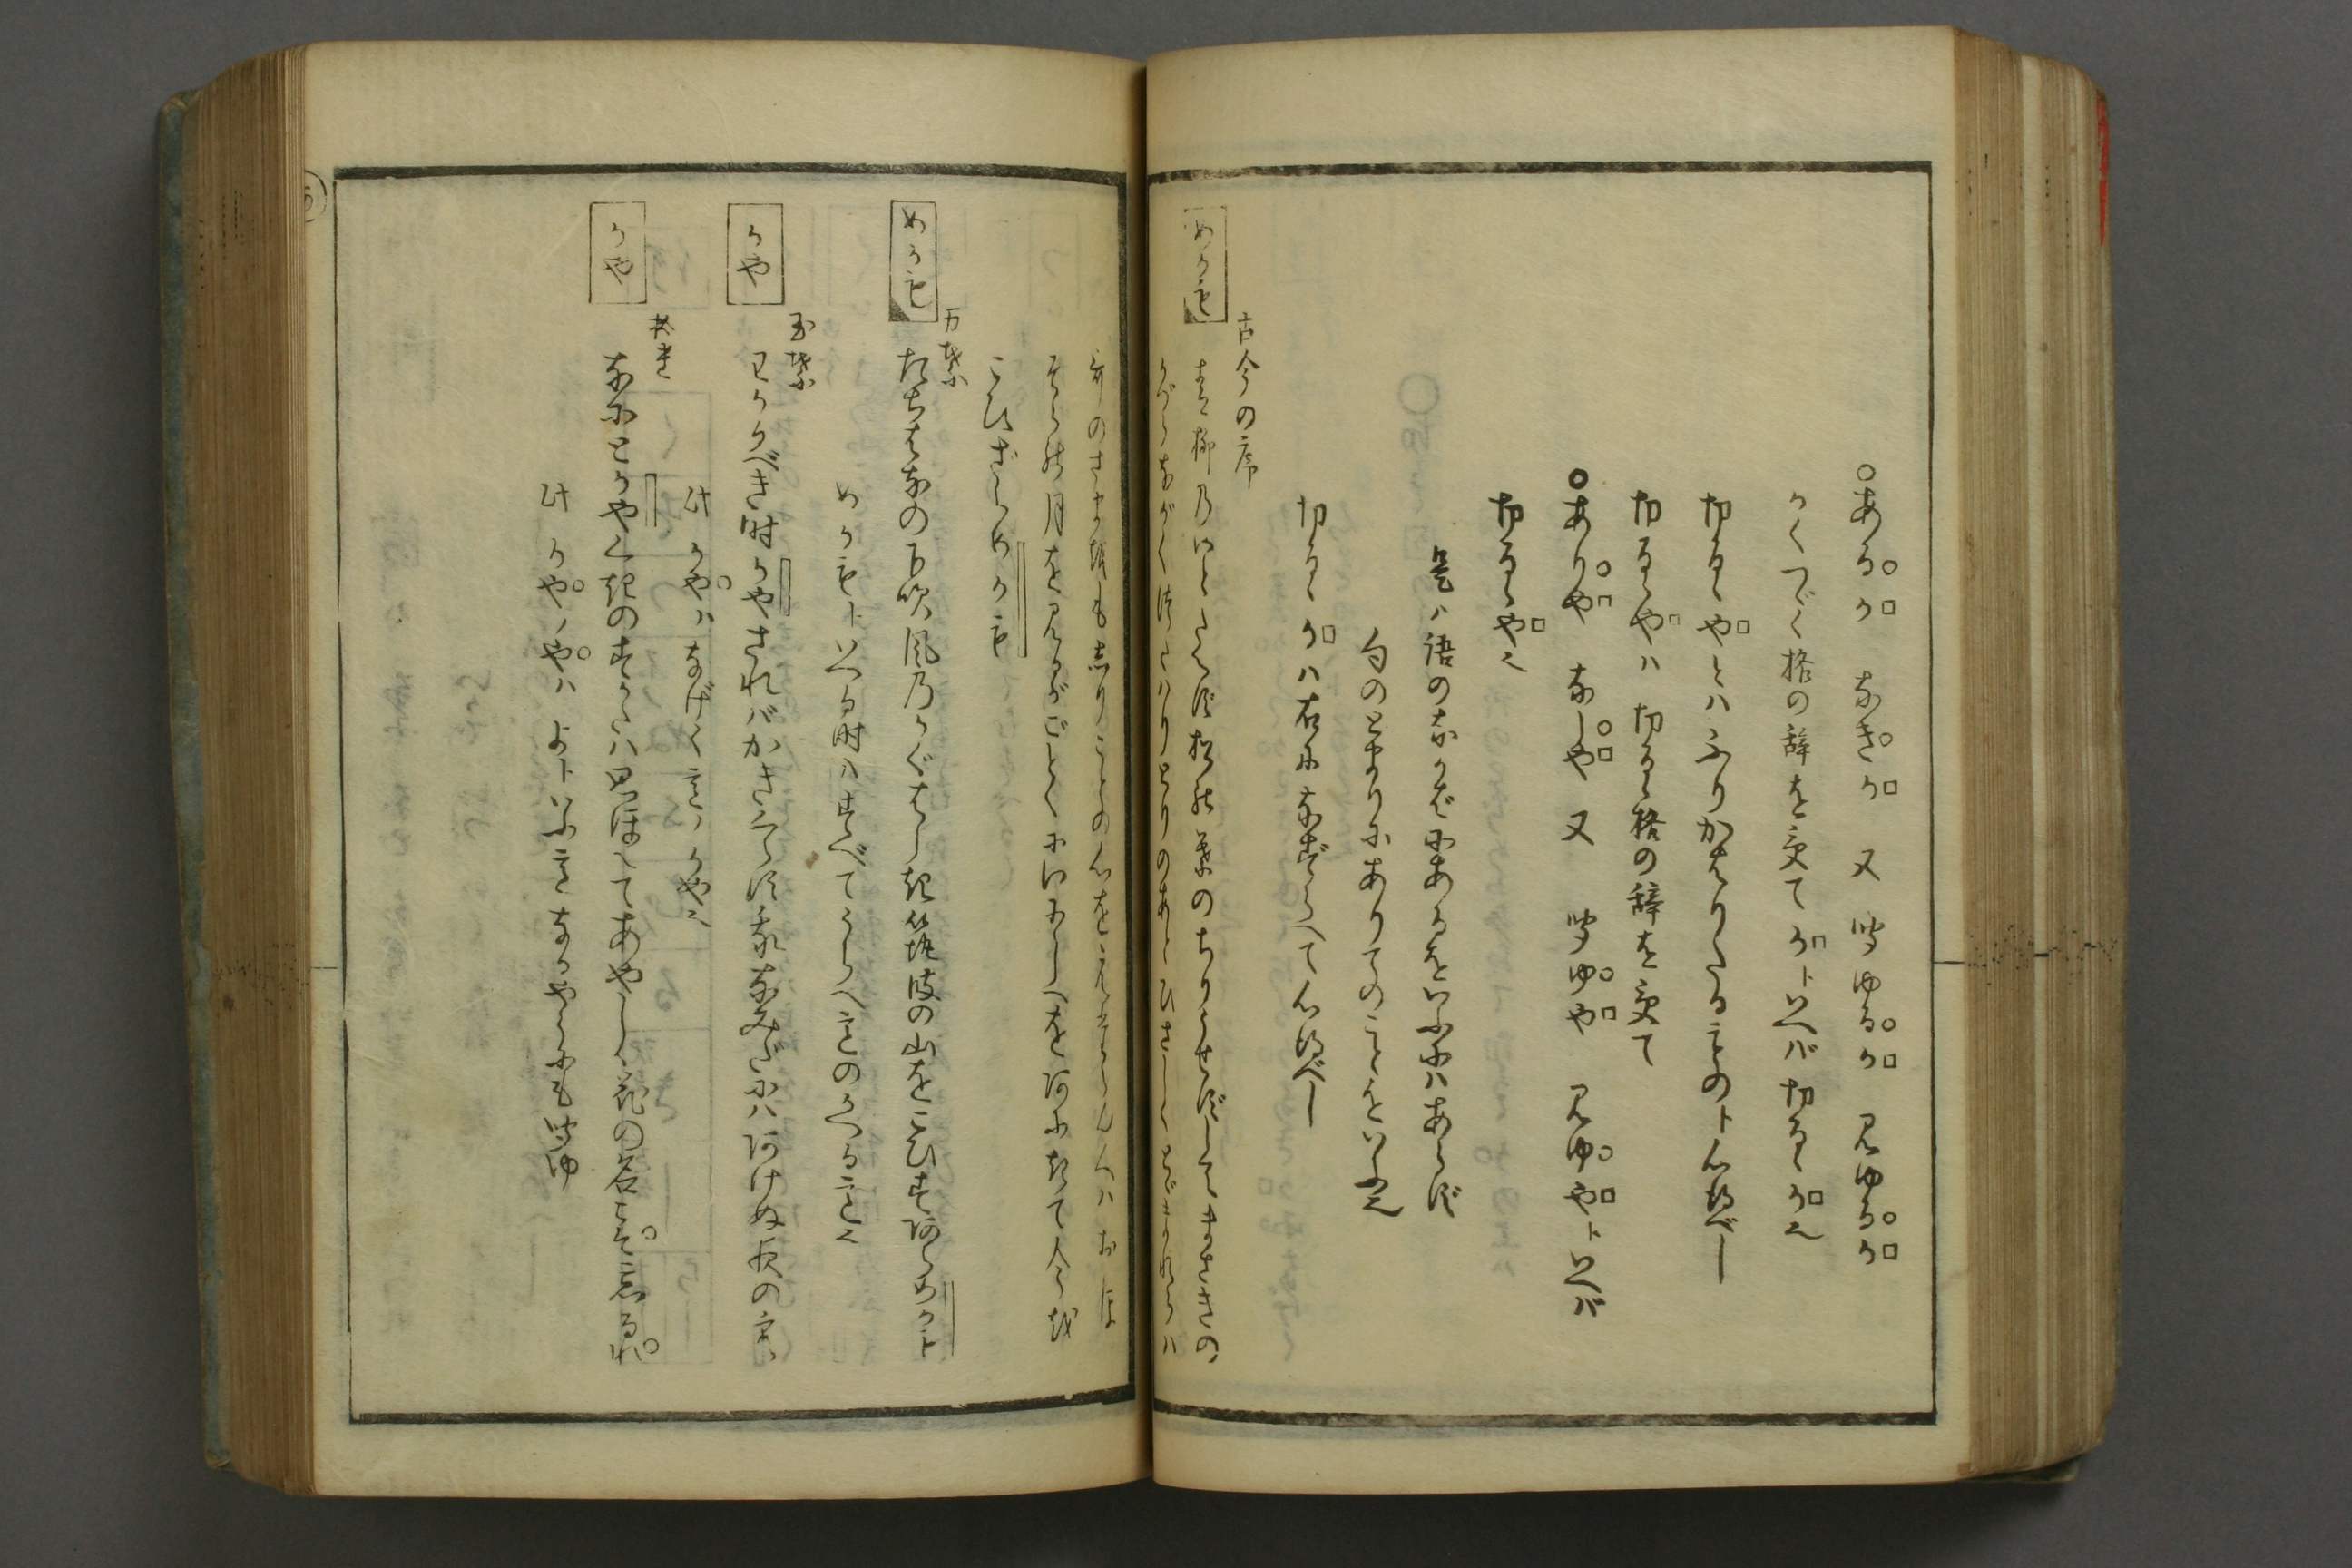 ○あるか なきか 又 聞ゆるか 見ゆるか
つゞく格の辞を受てかトいへバ切るゝか也
切るゝやとハふりかはりたることのト心得べし
切るゝやハ 切るゝ格の辞を受て
○ありや なしや 又 聞ゆや 見ゆやトいへバ
切るゝや也
是ハ語のなかばにあるをいふにハあらず
句のとまりにありてのことをいふ也
切るゝかハ右になずらへて心得べし
古今の序
めかも
青柳乃いとたえず松の葉のちりうせずしてまさきの
かづらながくつたはりとりのあとひさしくとゞまれらハ
哥のさまをもしりことの心をえたらん人ハおほ
そらの月を見るがごとくにいにしへをあふぎて今を
こひざらめかも
万葉
めかも
たちばなの下吹風乃かぐはしき筑波の山をこひずあらめかも
めかもトいへる時ハすべてうらへ意のかへること也
かや
わかるべき時かやされバかきくらし
あけぬ夜の
此 かやハなげく意ノかや也
かや
なにとかやくきのすがたハおぼしてあやしく花の名こそ忘るれ
此 かやノやハ よトいふ意 なるやうにも聞ゆ